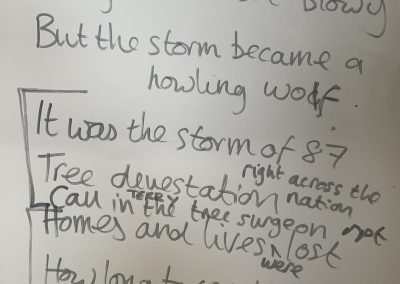 Blowy
But the storm became a
howling wolf.
It was the storm of 87
right across the
Tree devestation nation
TERRY
Call in the tree surgeon
Homes and lives lost
were
How long